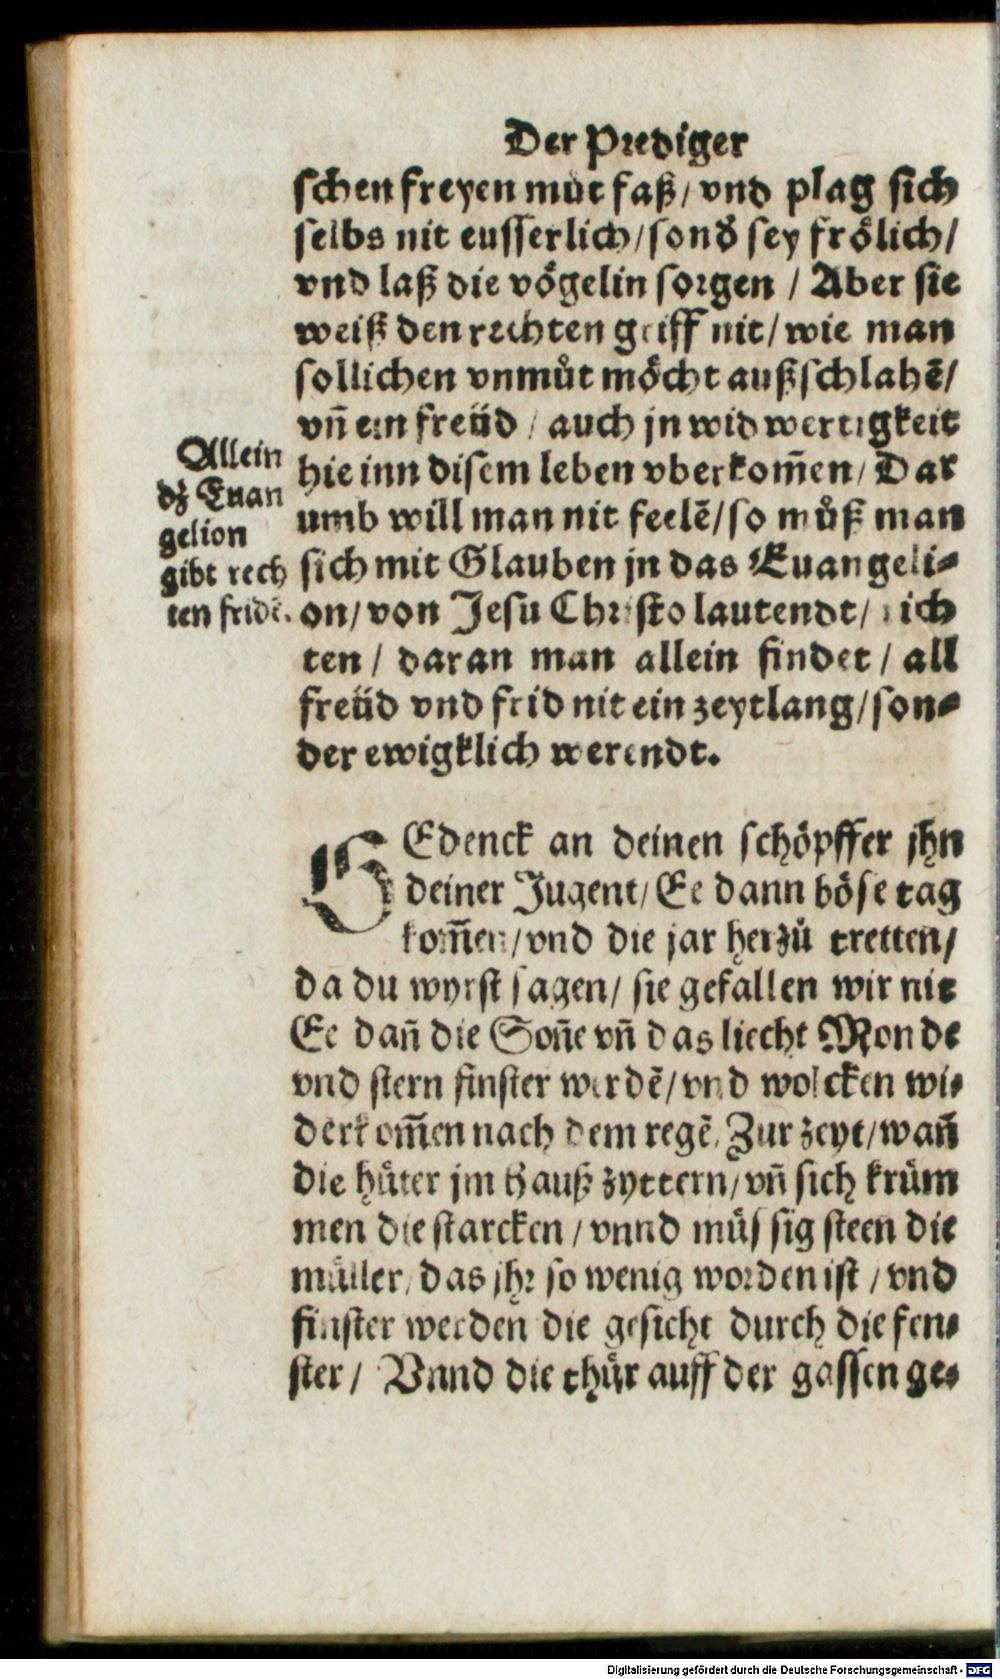 Der Prediger
schen freyen můt faß / vnd plag sich
selbs nit eusserlich / sonđ sey frölich /
vnd laß die vögelin sorgen / Aber sie
weiß den rechten griff nit / wie man
sollichen vnmůt möcht außschlahẽ /
vñ ein freüd / auch jn widwertigkeit
hie inn disem leben vberkom̃en / Dar
umb will man nit feelẽ / so můß man
sich mit Glauben jn das Euangeli⸗
on / von Jesu Christo lautendt / rich
ten / daran man allein findet / all
freüd vnd frid nit ein zeytlang / son⸗
der ewigklich werendt.
Allein
dz Euan
gelion
gibt rech
ten fridẽ.
GEdenck an deinen schöpffer jhn
deiner Jugent / Ee dann böse tag
kom̃en / vnd die jar herzů tretten /
da du wyrst sagen / sie gefallen wir nit
Ee dañ die Soñe vñ das liecht Monde
vnd stern finster werdẽ / vnd wolcken wi⸗
derkom̃en nach dem regẽ. Zur zeyt / wañ
die hůter jm hauß zyttern / vñ sich krüm
men die starcken / vnnd müssig steen die
müller / das jhr so wenig worden ist / vnd
finster werden die gesicht durch die fen⸗
ster / Vnnd die thür auff der gassen ge⸗
Digitalisierung gefördert durch die Deutsche Forschungsgemeinschaft - DFG